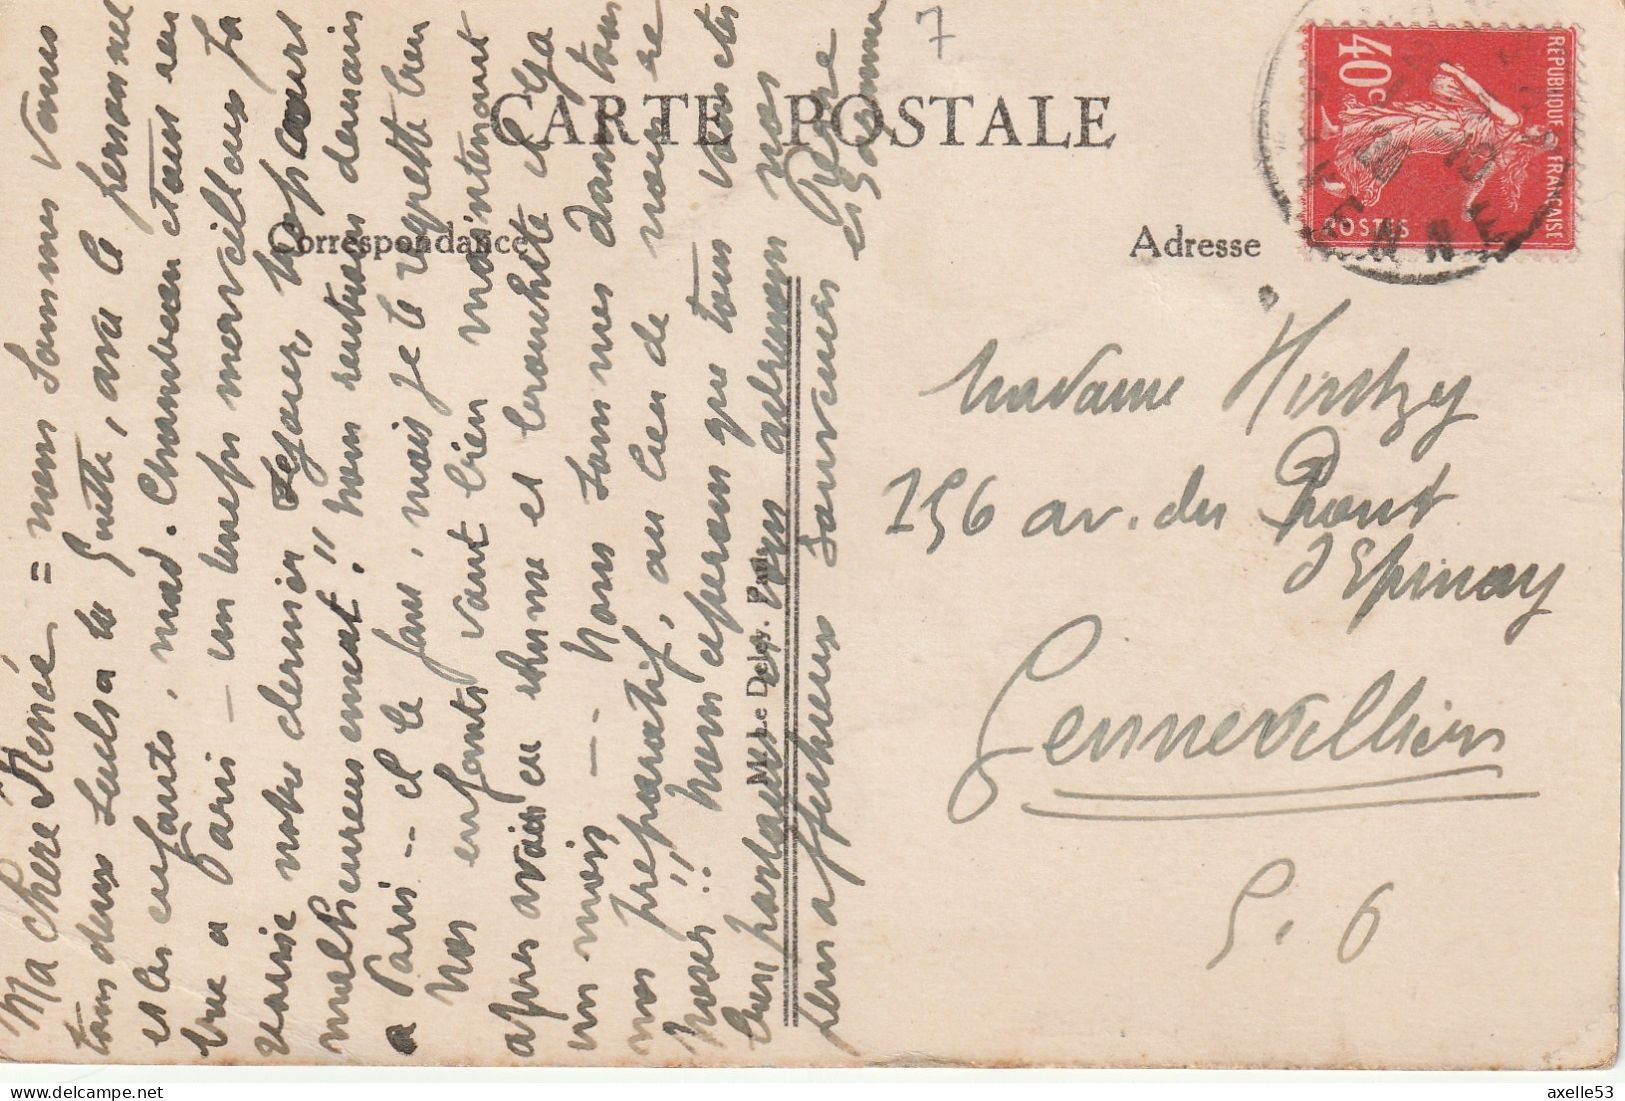 CARTE POSTALE
Correspondance
Adresse
7
REPUBLIQUE FRANÇAISE
40c
POSTES
ENNE
Ma chère Renée = nous sommes tous
tous deux seuls a la , avec le personnel
et les enfants, mad. Chambeau étais venue
a Paris – un temps merveilleux fa
vorise notre dernier séjour, trop court
malheureusement!! nous rentrons demain
a Paris -- il le faut, mais je le regrette bien
Nos enfants vont bien maintenant
apres avoir eu rhume et bronchite il y a
un mois — . Nous sommes dans tous
nos préparatifs, au lieu de nous re
poser!! nous espérons que tous vous etes
bien portants
bien affectueux souvenirs
M. Le Deley. Paris
Madame Hirtzy
156 av. du Pont
d'Epinay
Gennevilliers
S. O
axelle53